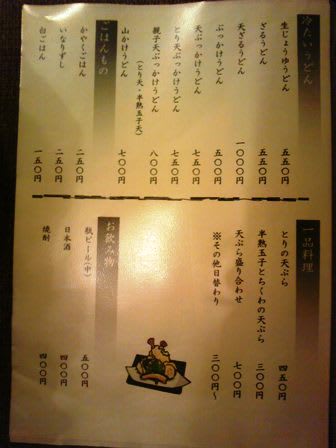 冷たいうどん
生じょうゆうどん 五五〇円
ざるうどん 五五〇円
天ざるうどん 一〇〇〇円
ぶっかけうどん 五〇〇円
天ぶっかけうどん 七五〇円
とり天ぶっかけうどん 七五〇円
親子天ぶっかけうどん 八〇〇円
(とり天・半熟玉子天)
山かけうどん 七〇〇円
ごはんもの
かやくごはん 二五〇円
いなりずし 二五〇円
白ごはん 一五〇円
一品料理
とりの天ぷら 四五〇円
半熟玉子とちくわの天ぷら 三〇〇円
天ぷら盛り合わせ 七〇〇円
※その他日替わり 三〇〇円〜
お飲み物
瓶ビール(中) 五〇〇円
日本酒 四〇〇円
焼酎 四〇〇円